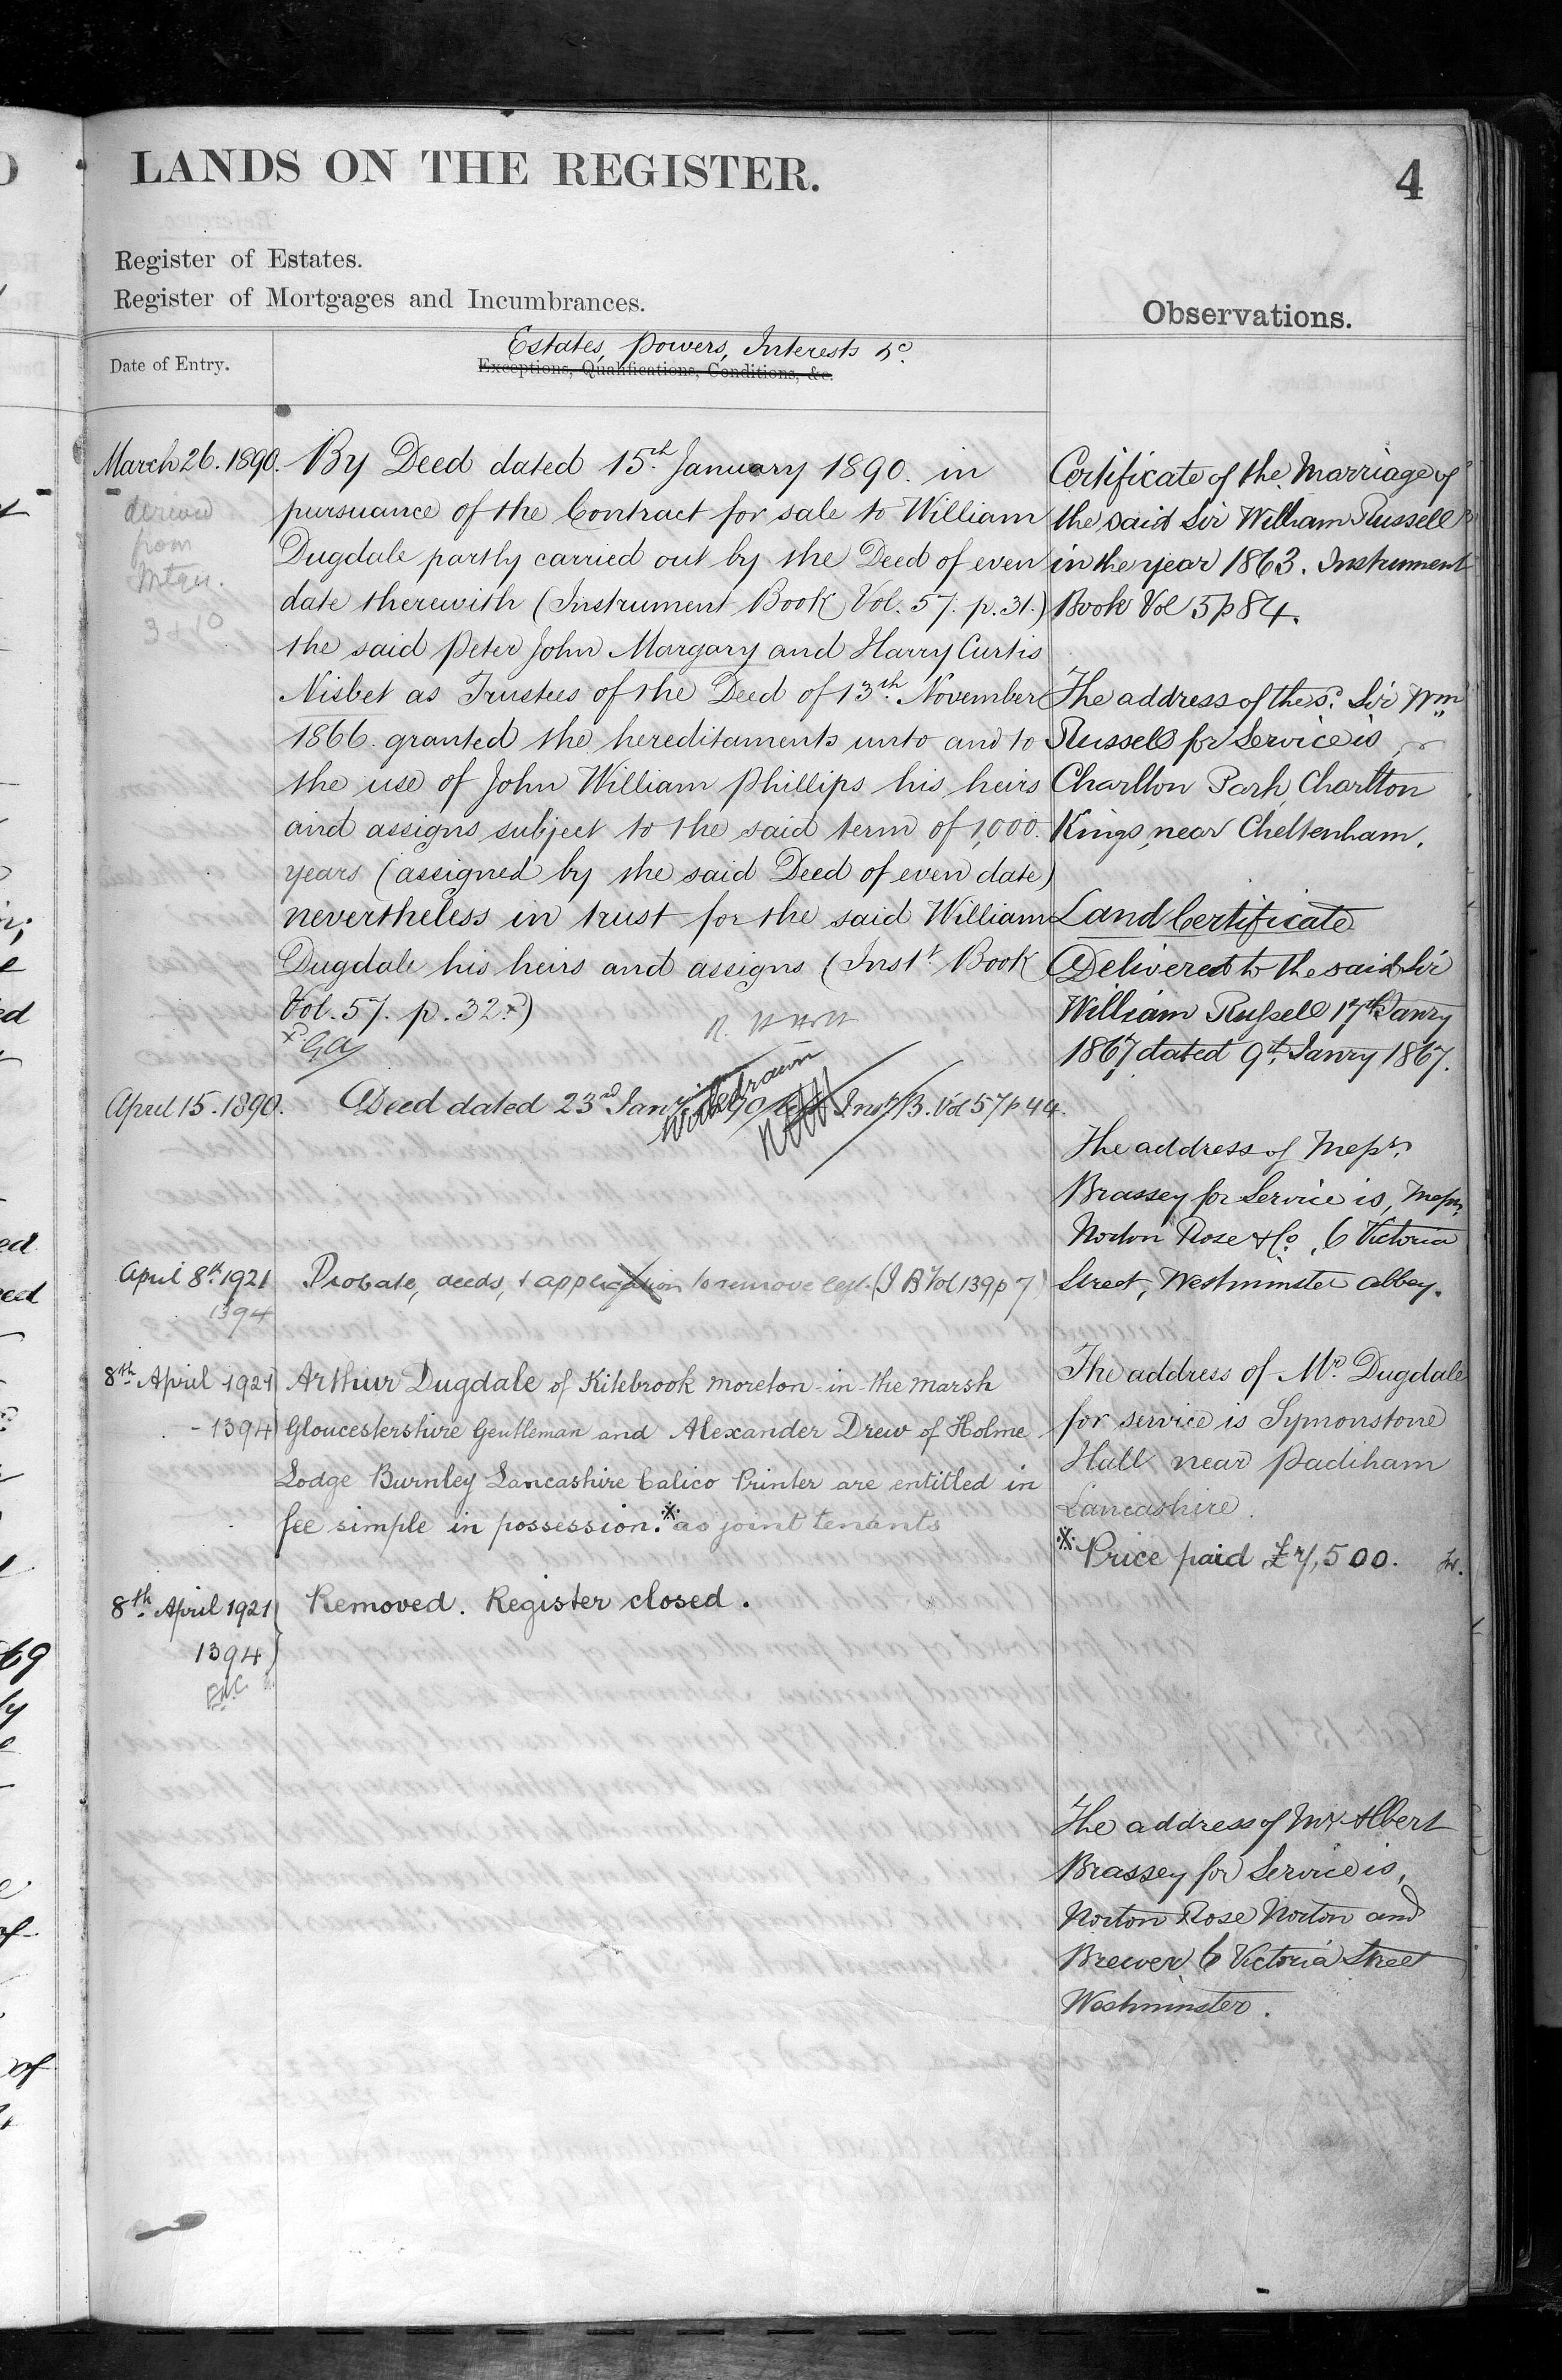 LANDS ON THE REGISTER.
4
Register of Estates.
Register of Mortgages and Incumbrances.
Observations.
Date of Entry.
Estates, Powers, Interests &c.
Exceptions, Qualifications, Conditions, &c.
March 26. 1890.
derived
from
Mtges.
By Deed dated 15th January 1890. in
pursuance of the Contract for sale to William
Dugdale partly carried out by the Deed of even
date therewith (Instrument Book Vol. 57. p. 31.)
the said Peter John Margary and Harry Curtis
Nisbet as Trustees of the Deed of 13th November
1866. granted the hereditaments unto and to
the use of John William Phillips his heirs
and assigns subject to the said term of 1,000.
years (assigned by the said Deed of even date)
nevertheless in trust for the said William
Dugdale his heirs and assigns (Instt Book
Vol. 57. p. 32.)
April 15. 1890.
Deed dated 23rd Jany 1890 Inst B. Vol 57 p 44.
Withdrawn
April 8th 1921
1394
Probate, deeds, & application to remove (I B Vol 139 p 7)
8th April 1921
- 1394
Arthur Dugdale of Kitebrook Moreton-in-the Marsh
Gloucestershire Gentleman and Alexander Drew of Holme
Lodge Burnley Lancashire Calico Printer are entitled in
fee simple in possession.* as joint tenants
8th April 1921
1394
Removed. Register closed.
Certificate of the Marriage of
the said Sir William Russell
in the year 1863. Instrument
Book Vol 5 p 84.
The address of the sd. Sir Wm
Russell for Service is
Charlton Park, Charlton
Kings, near Cheltenham.
Land Certificate
Delivered to the said Sir
William Russell 17th Janry
1867 dated 9th Janry 1867.
The address of Messrs.
Brassey for Service is, Messrs,
Norton Rose & Co. 6 Victoria
Street, Westminster Abbey.
The address of Mr. Dugdale
for service is Symonstone
Hall near Padiham
Lancashire.
* Price paid £7,500.
The address of Mr Albert
Brassey for Service is,
Norton Rose Norton and
Brewer 6 Victoria Street
Westminster.